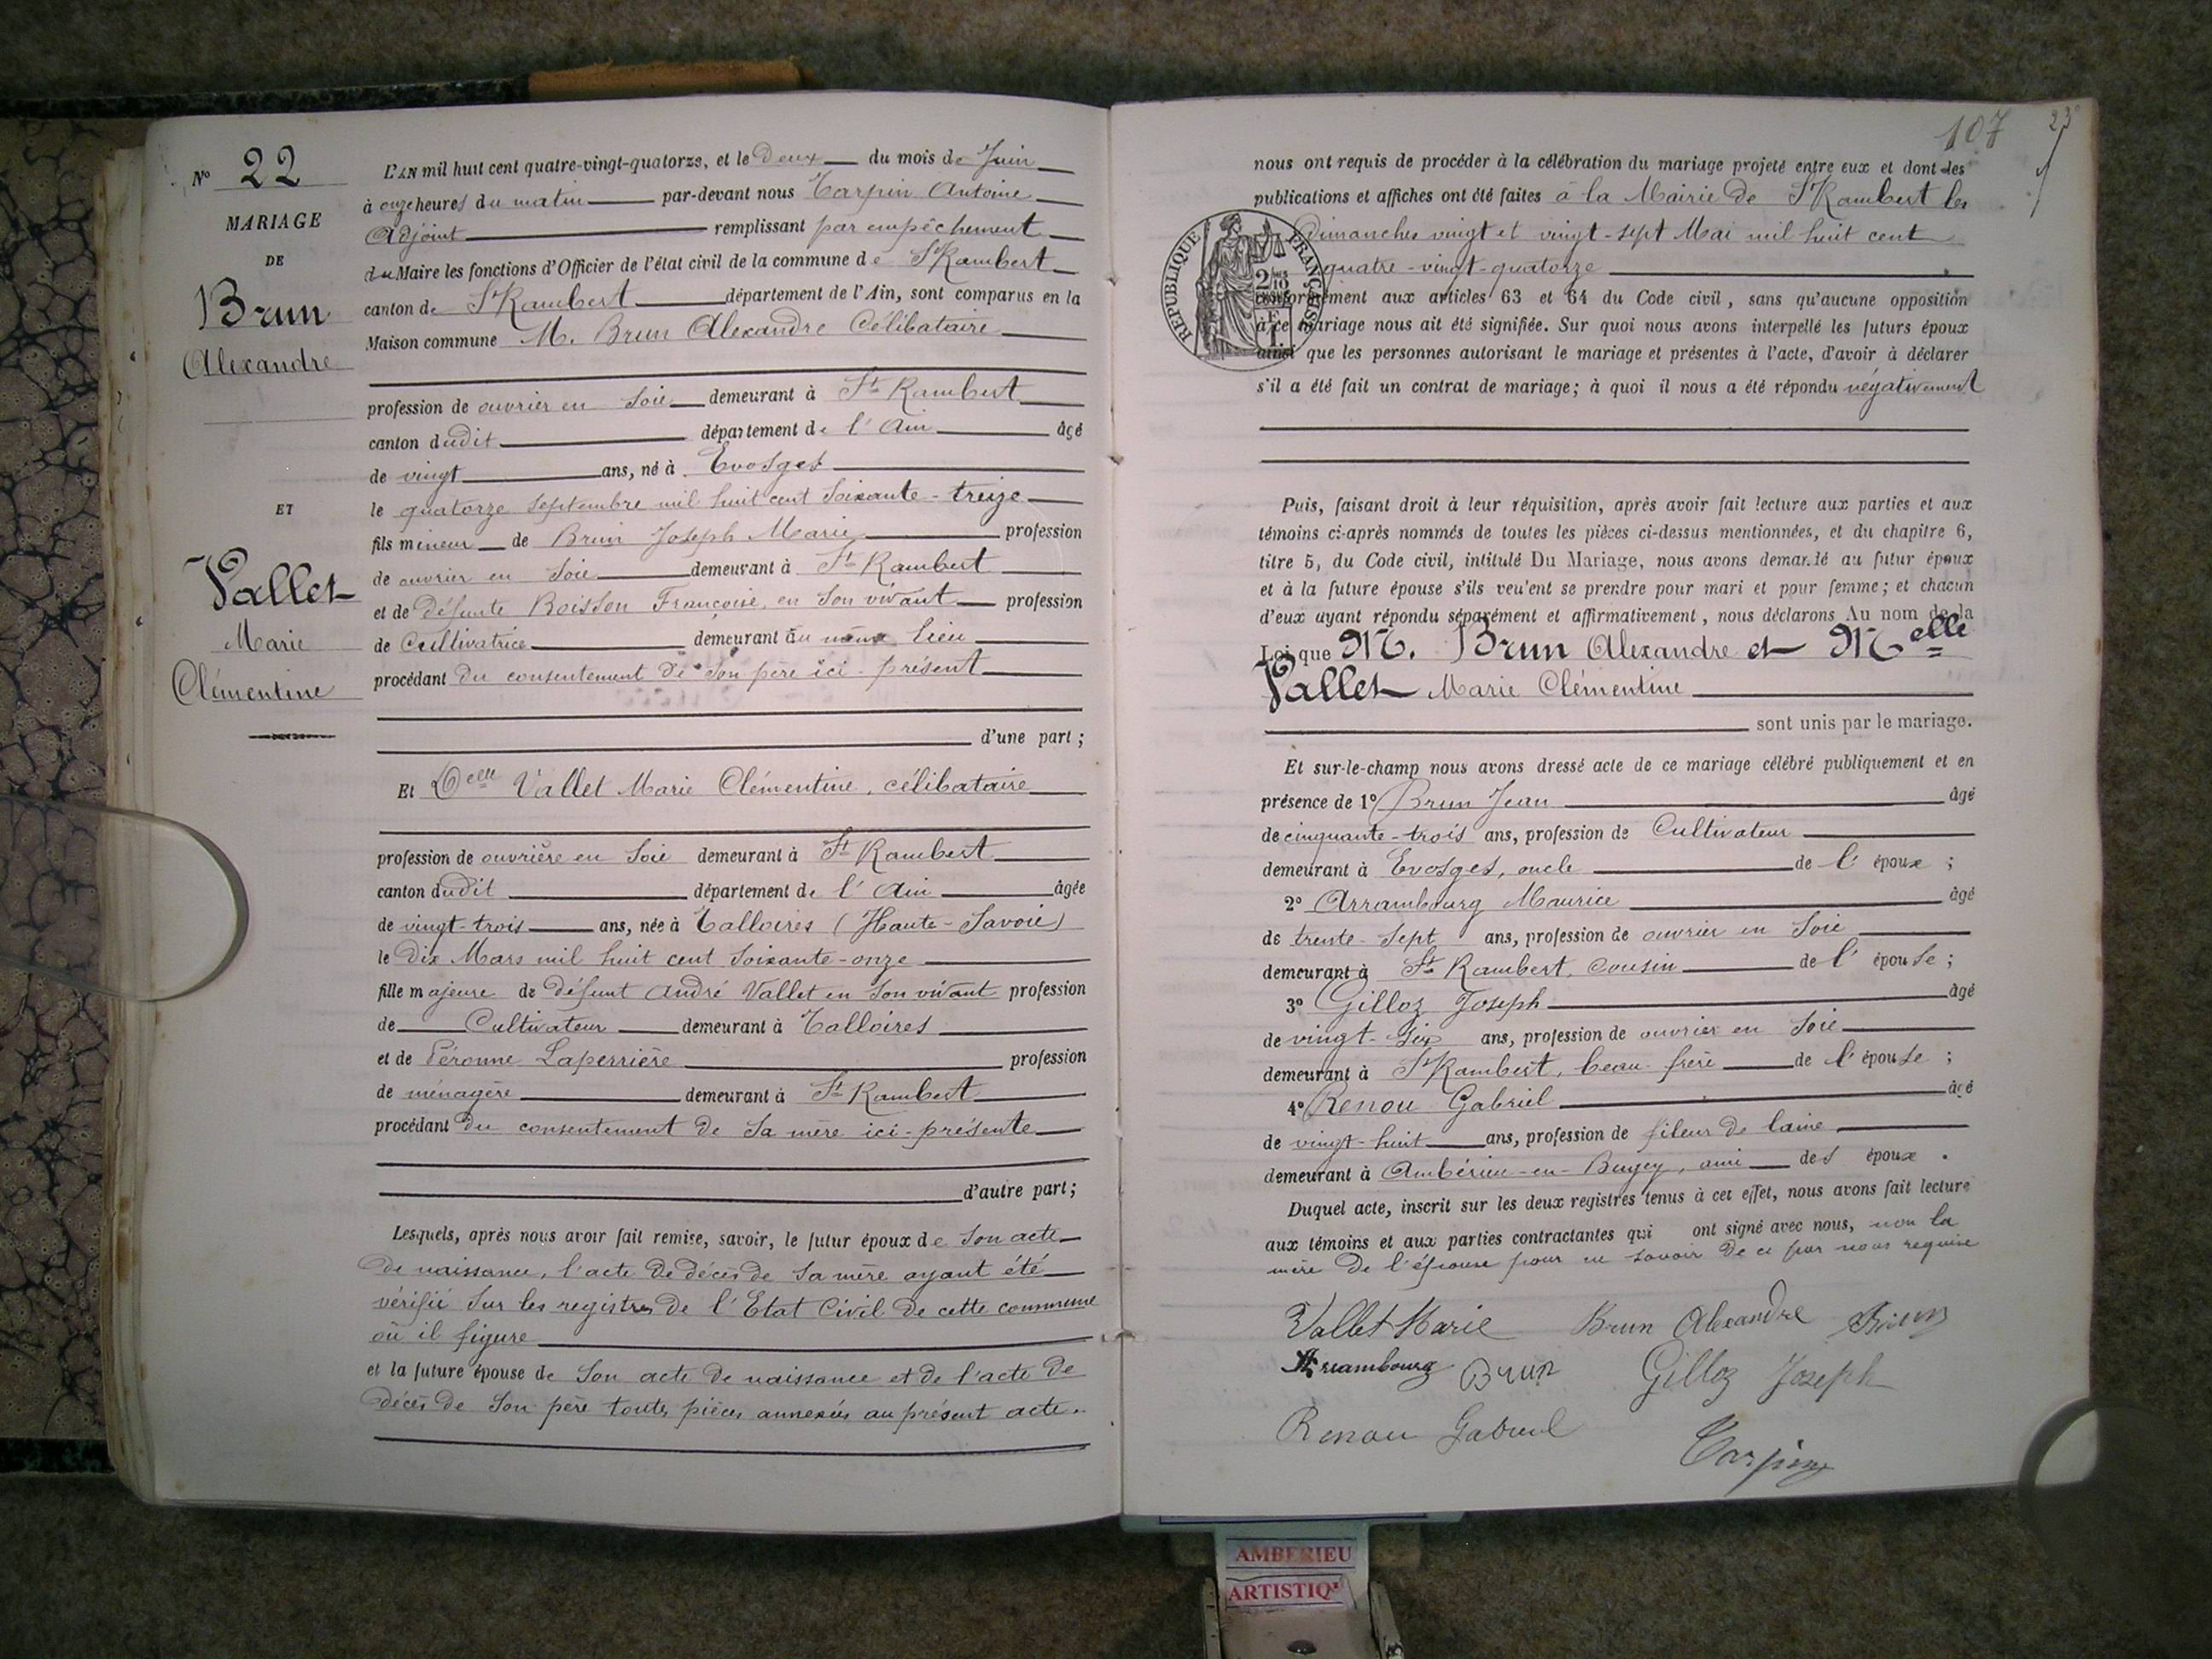 N° 22
MARIAGE
DE
Brun
Alexandre
ET
Vallet
Marie
Clémentine
L'AN mil huit cent quatre-vingt-quatorze, et le Deux du mois de Juin
à onze heures du matin par-devant nous Tarpin Antoine
Adjoint remplissant par empêchement
du Maire les fonctions d'Officier de l'état civil de la commune de St Rambert
canton de St Rambert département de l'Ain, sont comparus en la
Maison commune M. Brun Alexandre Célibataire
profession de ouvrier en soie demeurant à St Rambert
canton dudit département de l'Ain âgé
de vingt ans, né à Evosges
le quatorze septembre mil huit cent soixante-treize
fils mineur de Brun Joseph Marie profession
de ouvrier en soie demeurant à St Rambert
et de défunte Boisson Françoise, en son vivant profession
de Cultivatrice demeurant au même lieu
procédant du consentement de son père ici-présent
d'une part;
Et Delle Vallet Marie Clémentine, célibataire
profession de ouvrière en soie demeurant à St Rambert
canton dudit département de l'Ain âgée
de vingt-trois ans, née à Talloires (Haute-Savoie)
le dix Mars mil huit cent soixante-onze
fille majeure de défunt André Vallet en son vivant profession
de Cultivateur demeurant à Talloires
et de Péronne Laperrière profession
de ménagère demeurant à St Rambert
procédant du consentement de sa mère ici-présente
d'autre part;
Lesquels, après nous avoir fait remise, savoir, le futur époux de son acte
de naissance, l'acte de décès de sa mère ayant été
vérifié sur les registres de l'Etat Civil de cette commune
où il figure
et la future épouse de son acte de naissance et de l'acte de
décès de son père toutes pièces annexées au présent acte.
107
23
nous ont requis de procéder à la célébration du mariage projeté entre eux et dont les
publications et affiches ont été faites à la Mairie de St Rambert les
Dimanches vingt et vingt-sept Mai mil huit cent
quatre-vingt-quatorze
RÉPUBLIQUE FRANÇAISE
conformément aux articles 63 et 64 du Code civil, sans qu'aucune opposition
à ce mariage nous ait été signifiée. Sur quoi nous avons interpellé les futurs époux
ainsi que les personnes autorisant le mariage et présentes à l'acte, d'avoir à déclarer
s'il a été fait un contrat de mariage; à quoi il nous a été répondu négativement
Puis, faisant droit à leur réquisition, après avoir fait lecture aux parties et aux
témoins ci-après nommés de toutes les pièces ci-dessus mentionnées, et du chapitre 6,
titre 5, du Code civil, intitulé Du Mariage, nous avons demandé au futur époux
et à la future épouse s'ils veulent se prendre pour mari et pour femme; et chacun
d'eux ayant répondu séparément et affirmativement, nous déclarons Au nom de la
Loi que M. Brun Alexandre et Melle
Vallet Marie Clémentine
sont unis par le mariage.
Et sur-le-champ nous avons dressé acte de ce mariage célébré publiquement et en
présence de 1° Brun Jean âgé
de cinquante-trois ans, profession de Cultivateur
demeurant à Evosges, oncle de l'époux;
2° Arrambourg Maurice âgé
de trente-sept ans, profession de ouvrier en soie
demeurant à St Rambert, cousin de l'épouse;
3° Gilloz Joseph âgé
de vingt-six ans, profession de ouvrier en soie
demeurant à St Rambert, beau-frère de l'épouse;
4° Renou Gabriel âgé
de vingt-huit ans, profession de fileur de laine
demeurant à Ambérieu-en-Bugey, ami des époux.
Duquel acte, inscrit sur les deux registres tenus à cet effet, nous avons fait lecture
aux témoins et aux parties contractantes qui ont signé avec nous, non la
mère de l'épouse pour ne savoir de ce par nous requise
Vallet Marie Brun Alexandre Brun
Arrambourg Brun Gilloz Joseph
Renou Gabriel
Tarpin
AMBERIEU
ARTISTIQ